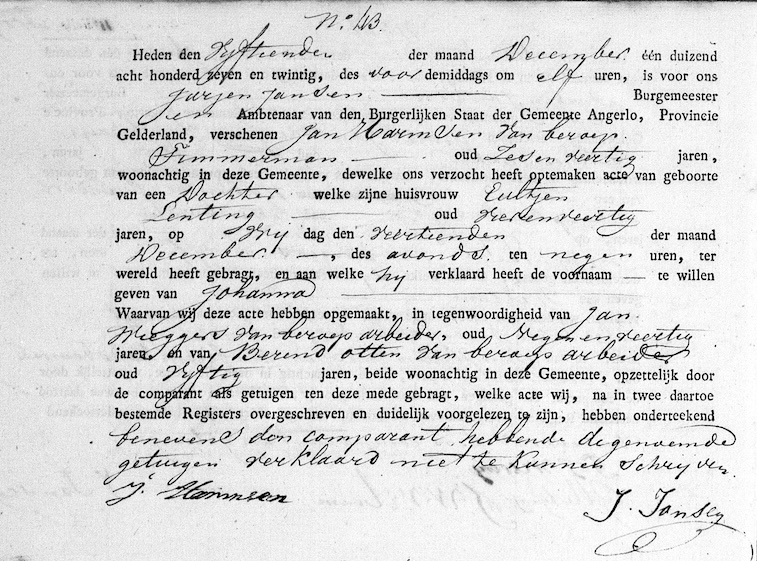 No. 43.
Heden den Vyftienden der maand December één duizend
acht honderd zeven en twintig, des voor demiddags om elf uren, is voor ons
Jurjen Jansen Burgemeester
en Ambtenaar van den Burgerlijken Staat der Gemeente Angerlo, Provincie
Gelderland, verschenen Jan Harmsen van beroep
Timmerman oud Zes en veertig jaren,
woonachtig in deze Gemeente, dewelke ons verzocht heeft optemaken acte van geboorte
van een Dochter welke zijne huisvrouw Eultjen
Lenting oud vier en veertig
jaren, op Vry dag den veertienden der maand
December, des avonds ten negen uren, ter
wereld heeft gebragt, en aan welke hy verklaard heeft de voornaam te willen
geven van Johanna
Waarvan wij deze acte hebben opgemaakt, in tegenwoordigheid van Jan
Wieggers van beroep arbeider, oud Negen en veertig
jaren, en van Berend Otten van beroep arbeider
oud Vyftig jaren, beide woonachtig in deze Gemeente, opzettelijk door
de comparant als getuigen ten deze mede gebragt, welke acte wij, na in twee daartoe
bestemde Registers overgeschreven en duidelijk voorgelezen te zijn, hebben onderteekend
benevens den comparant, hebbende de genoemde
getuigen verklaard niet te kunnen schryven.
J. Harmsen
J. Jansen